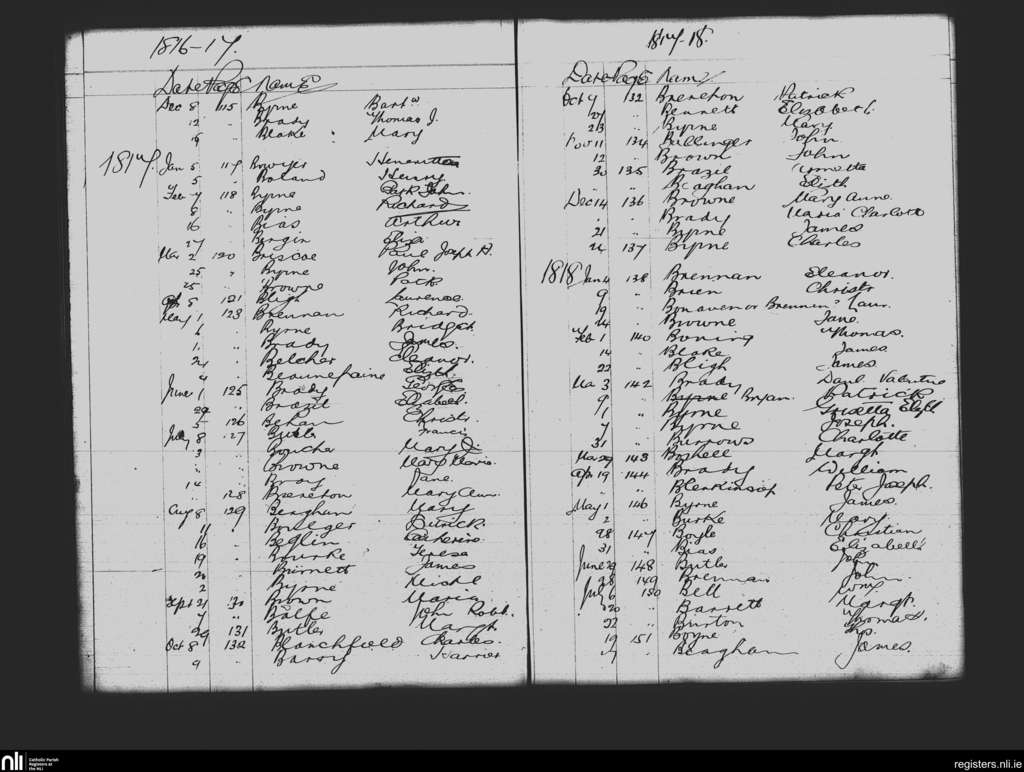 1816-17.
Date Page Name
Dec 8 115 Byrne Bartw
12 " Brady Thomas J.
" Blake Mary
1817. Jan 5 117 Bowyer
5 " Boland Henry
Feb 7 118 Byrne Patk John
8 " Byrne Richard
16 " Bias Arthur
27 " Bergin Eliza
Mar 2 120 Briscoe Paul Joseph H.
25 " Byrne John.
25 " Browne Patk
Ap 5 121 Bligh Laurence.
May 1 123 Brennan Richard.
6 " Byrne Bridget
1. " Brady James.
" Belcher Eleanor.
4 " Elizth
June 1 125 Brady George
29 " Brazil Elizabeth
5 126 Behan Christr
July 8 127 Butler Francis
3 " Boucher Mary J.
" " Browne Mary Maria
14 " Bray Jane.
" 128 Brereton Mary Ann.
Aug 8 129 Beaghan Mary
11 "
16 " Beglin Catherine
19 " Bourke Teresa
" Burnett James
2 " Byrne Michl
Sept 21 130 Brown Maria
7 " Balfe John Robt.
29 131 Butler Margt
Oct 8 132 Blanchfield Charles.
9 " Barry Harriet
1817-18.
Date Page Name
Oct 7 132 Brereton Patrick
27 " Bennett Elizabeth.
23 " Byrne Mary
Nov 11 134 Ballinger John
12 " Brown John
30 135 Brazil
" " Beaghan Elizth
Dec 14 136 Browne Mary Anne
" " Brady Maria Charlotte
21 " Byrne James
26 137 Byrne Charles
1818 Jan 4 138 Brennan Eleanor.
9 " Brien Christr
19 " Bonaven or Brennin Laur.
24 " Browne Jane.
Feb 1 140 Boning Thomas.
14 " Blake James
22 " Bligh James
Ma 3 142 Brady Danl Valentine
9 " Byrne Bryan. Patrick
1 " Byrne Elizth
7 " Byrne Joseph.
31 " Burrows Charlotte
Ma 29 143 Boshell Margt
Ap 19 144 Brady William
" " Blenkinsop Peter Joseph.
May 1 146 Byrne James.
2 " Burke Mary
28 147 Boyle Christian
31 " Bias Elizabeth
June 29 148 Butler John
28 149 Brennan John
July 6 150 Bell
20 " Barrett Margt.
22 " Burton Thomas.
19 151 Boyne
" " Beaghan James.
nli Catholic Parish
Registers at
the NLI
registers.nli.ie